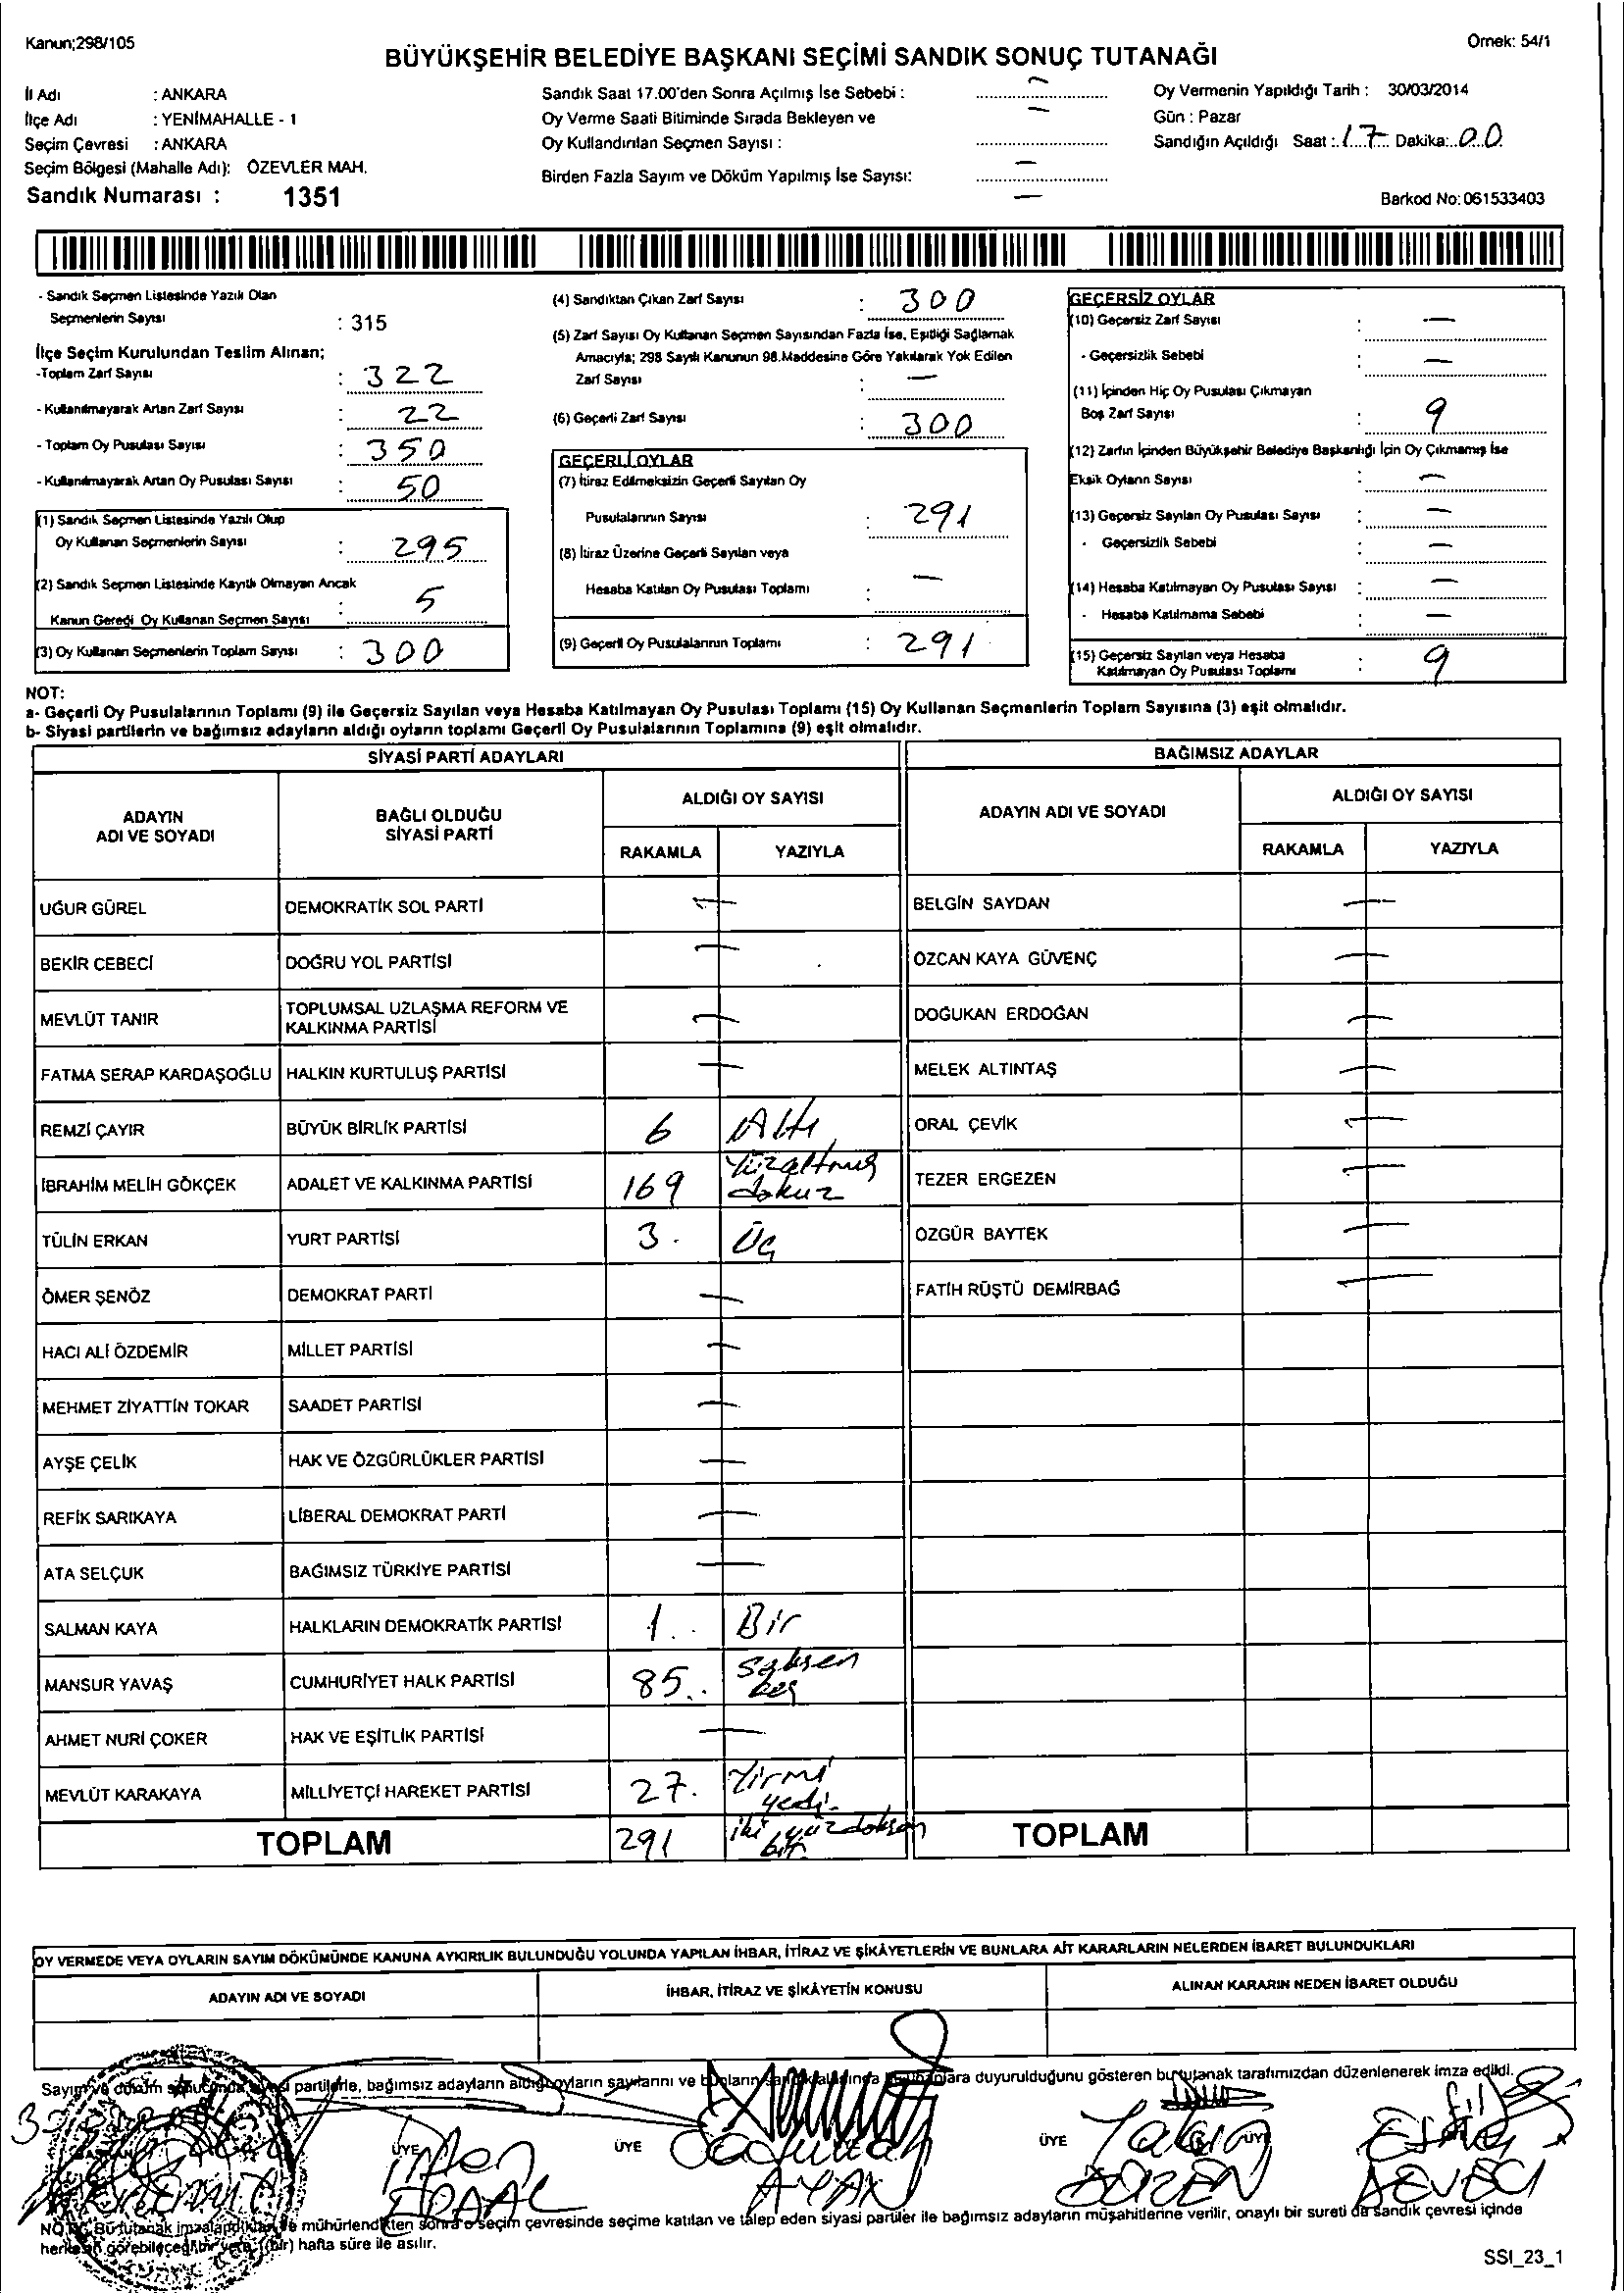 Kanun;298/105
Örnek: 54/1
BÜYÜKŞEHİR BELEDİYE BAŞKANI SEÇİMİ SANDIK SONUÇ TUTANAĞI
İl Adı : ANKARA
İlçe Adı : YENİMAHALLE - 1
Seçim Çevresi : ANKARA
Seçim Bölgesi (Mahalle Adı): ÖZEVLER MAH.
Sandık Numarası : 1351
Sandık Saat 17.00'den Sonra Açılmış İse Sebebi : —
Oy Verme Saati Bitiminde Sırada Bekleyen ve —
Oy Kullandırılan Seçmen Sayısı :
Birden Fazla Sayım ve Döküm Yapılmış İse Sayısı: —
—
Oy Vermenin Yapıldığı Tarih : 30/03/2014
Gün : Pazar
Sandığın Açıldığı Saat : 17 Dakika: 00
Barkod No: 061533403
- Sandık Seçmen Listesinde Yazılı Olan
Seçmenlerin Sayısı : 315
İlçe Seçim Kurulundan Teslim Alınan;
-Toplam Zarf Sayısı : 322
- Kullanılmayarak Artan Zarf Sayısı : 22
- Toplam Oy Pusulası Sayısı : 350
- Kullanılmayarak Artan Oy Pusulası Sayısı : 50
(1) Sandık Seçmen Listesinde Yazılı Olup
Oy Kullanan Seçmenlerin Sayısı : 295
(2) Sandık Seçmen Listesinde Kayıtlı Olmayan Ancak
Kanun Gereği Oy Kullanan Seçmen Sayısı : 5
(3) Oy Kullanan Seçmenlerin Toplam Sayısı : 300
(4) Sandıktan Çıkan Zarf Sayısı : 300
(5) Zarf Sayısı Oy Kullanan Seçmen Sayısından Fazla İse, Eşitliği Sağlamak
Amacıyla; 298 Sayılı Kanunun 98.Maddesine Göre Yakılarak Yok Edilen
Zarf Sayısı : —
(6) Geçerli Zarf Sayısı : 300
GEÇERLİ OYLAR
(7) İtiraz Edilmeksizin Geçerli Sayılan Oy
Pusulalarının Sayısı : 291
(8) İtiraz Üzerine Geçerli Sayılan veya
Hesaba Katılan Oy Pusulası Toplamı : —
(9) Geçerli Oy Pusulalarının Toplamı : 291
GEÇERSİZ OYLAR
(10) Geçersiz Zarf Sayısı : —
- Geçersizlik Sebebi : —
(11) İçinden Hiç Oy Pusulası Çıkmayan
Boş Zarf Sayısı : 9
(12) Zarfın İçinden Büyükşehir Belediye Başkanlığı İçin Oy Çıkmamış İse
Eksik Oyların Sayısı : —
(13) Geçersiz Sayılan Oy Pusulası Sayısı : —
- Geçersizlik Sebebi : —
(14) Hesaba Katılmayan Oy Pusulası Sayısı : —
- Hesaba Katılmama Sebebi : —
(15) Geçersiz Sayılan veya Hesaba
Katılmayan Oy Pusulası Toplamı : 9
NOT:
a- Geçerli Oy Pusulalarının Toplamı (9) ile Geçersiz Sayılan veya Hesaba Katılmayan Oy Pusulası Toplamı (15) Oy Kullanan Seçmenlerin Toplam Sayısına (3) eşit olmalıdır.
b- Siyasi partilerin ve bağımsız adayların aldığı oyların toplamı Geçerli Oy Pusulalarının Toplamına (9) eşit olmalıdır.
SİYASİ PARTİ ADAYLARI
ADAYIN
ADI VE SOYADI
BAĞLI OLDUĞU
SİYASİ PARTİ
ALDIĞI OY SAYISI
RAKAMLA YAZIYLA
UĞUR GÜREL DEMOKRATİK SOL PARTİ —
BEKİR CEBECİ DOĞRU YOL PARTİSİ —
MEVLÜT TANIR TOPLUMSAL UZLAŞMA REFORM VE
KALKINMA PARTİSİ —
FATMA SERAP KARDAŞOĞLU HALKIN KURTULUŞ PARTİSİ —
REMZİ ÇAYIR BÜYÜK BİRLİK PARTİSİ 6 Altı
İBRAHİM MELİH GÖKÇEK ADALET VE KALKINMA PARTİSİ 169 Yüzaltmış
dokuz
TÜLİN ERKAN YURT PARTİSİ 3. Üç
ÖMER ŞENÖZ DEMOKRAT PARTİ —
HACI ALİ ÖZDEMİR MİLLET PARTİSİ —
MEHMET ZİYATTİN TOKAR SAADET PARTİSİ —
AYŞE ÇELİK HAK VE ÖZGÜRLÜKLER PARTİSİ —
REFİK SARIKAYA LİBERAL DEMOKRAT PARTİ —
ATA SELÇUK BAĞIMSIZ TÜRKİYE PARTİSİ —
SALMAN KAYA HALKLARIN DEMOKRATİK PARTİSİ 1.. Bir
MANSUR YAVAŞ CUMHURİYET HALK PARTİSİ 85.. Seksen
beş
AHMET NURİ ÇOKER HAK VE EŞİTLİK PARTİSİ —
MEVLÜT KARAKAYA MİLLİYETÇİ HAREKET PARTİSİ 27. Yirmi
yedi.
TOPLAM 291 iki yüz doksan
bir.
BAĞIMSIZ ADAYLAR
ADAYIN ADI VE SOYADI
ALDIĞI OY SAYISI
RAKAMLA YAZIYLA
BELGİN SAYDAN —
ÖZCAN KAYA GÜVENÇ —
DOĞUKAN ERDOĞAN —
MELEK ALTINTAŞ —
ORAL ÇEVİK —
TEZER ERGEZEN —
ÖZGÜR BAYTEK —
FATİH RÜŞTÜ DEMİRBAĞ —
TOPLAM
OY VERMEDE VEYA OYLARIN SAYIM DÖKÜMÜNDE KANUNA AYKIRILIK BULUNDUĞU YOLUNDA YAPILAN İHBAR, İTİRAZ VE ŞİKÂYETLERİN VE BUNLARA AİT KARARLARIN NELERDEN İBARET BULUNDUKLARI
ADAYIN ADI VE SOYADI
İHBAR, İTİRAZ VE ŞİKÂYETİN KONUSU
ALINAN KARARIN NEDEN İBARET OLDUĞU
Sayım ve döküm sonucunda siyasi partilerle, bağımsız adayların aldığı oyların sayılarını ve bunların duyurulduğunu gösteren bu tutanak tarafımızdan düzenlenerek imza edildi.
ÜYE ÜYE ÜYE ÜYE
Sadullah
AYAN
NOT: Bu tutanak imzalandıktan ve mühürlendikten sonra o seçim çevresinde seçime katılan ve talep eden siyasi partiler ile bağımsız adayların müşahitlerine verilir, onaylı bir sureti de sandık çevresi içinde
herkesin görebileceği bir yere 1 (bir) hafta süre ile asılır.
SSI_23_1